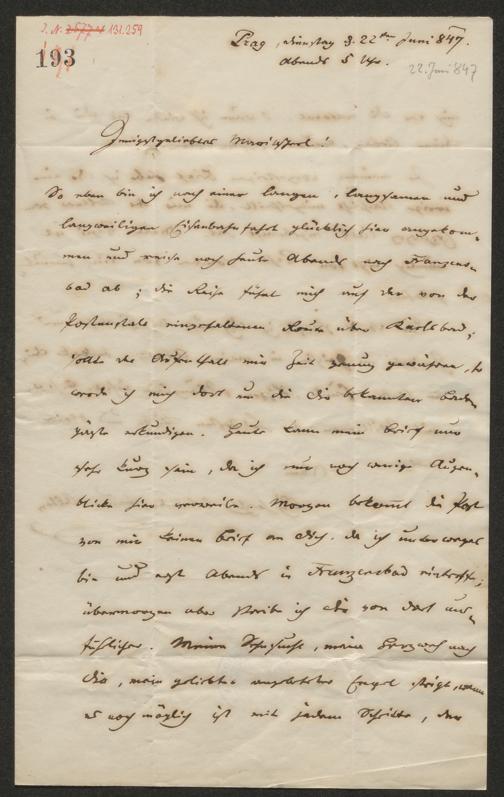 I. N. 25774 131.259
193
Prag, Dienstag d. 22ten Juni 847.
Abends 5 Uhr.
22. Juni 847
Innigstgeliebtes Marischerl!
So eben bin ich nach einer langen, langsamen und
langweiligen Eisenbahnfahrt glücklich hier angekom-
men und reise noch heute Abends nach Franzens-
bad ab; die Reise führt mich auf der von der
Postanstalt eingehaltenen Route über Karlsbad;
sollte der Aufenthalt mir Zeit genug gewähren, so
werde ich mich dort um die Dir bekannten Bade-
gäste erkundigen. Heute kann mein Brief nur
sehr kurz sein, da ich nur noch wenige Augen-
blicke hier verweile. Morgen bekommt die Post
von mir keinen Brief an Dich, da ich unterweges
bin und erst Abends in Franzensbad eintreffe;
übermorgen aber schreibe ich Dir von dort aus-
führlicher. Meine Sehnsucht, meine Herzweh nach
Dir, mein geliebter angebeteter Engel steigt, wenn
es noch möglich ist mit jedem Schritte, der